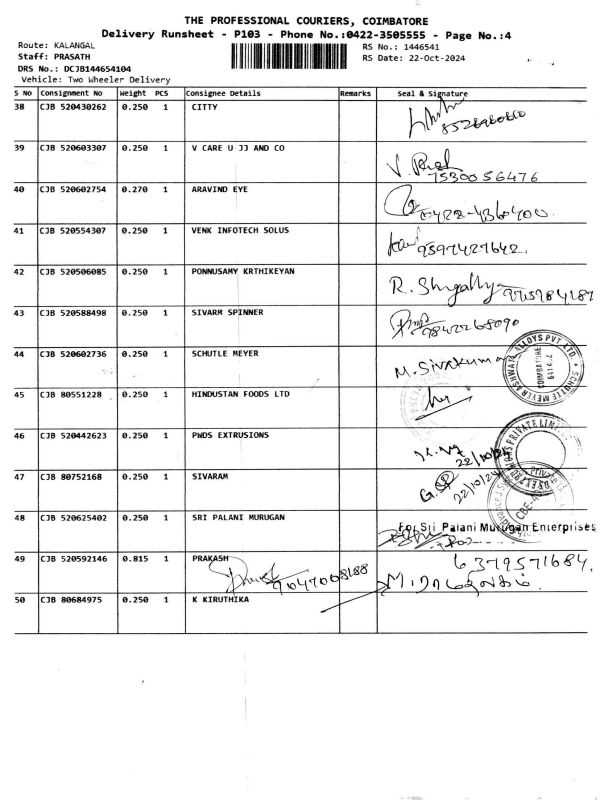 THE PROFESSIONAL COURIERS, COIMBATORE
Delivery Runsheet - P103 - Phone No.:0422-3505555 - Page No.:4
Route: KALANGAL RS No.: 1446541
Staff: PRASATH RS Date: 22-Oct-2024
DRS No.: DCJB144654104
Vehicle: Two Wheeler Delivery
S No Consignment No Weight PCS Consignee Details Remarks Seal & Signature
38 CJB 520430262 0.250 1 CITTY
39 CJB 520603307 0.250 1 V CARE U JJ AND CO
7530056476
40 CJB 520602754 0.270 1 ARAVIND EYE
0422-4360400
41 CJB 520554307 0.250 1 VENK INFOTECH SOLUS
9597427642
42 CJB 520506085 0.250 1 PONNUSAMY KRTHIKEYAN
43 CJB 520588498 0.250 1 SIVARM SPINNER
9842268090
44 CJB 520602736 0.250 1 SCHUTLE MEYER
M. Sivakumar
SCHUTLE MEYER ASHWATH ALLOYS PVT LTD
COIMBATORE
45 CJB 80551228 0.250 1 HINDUSTAN FOODS LTD
46 CJB 520442623 0.250 1 PWDS EXTRUSIONS
22/10/24
47 CJB 80752168 0.250 1 SIVARAM
22/10/24
48 CJB 520625402 0.250 1 SRI PALANI MURUGAN
For Sri Palani Murugan Enterprises
49 CJB 520592146 0.815 1 PRAKASH
9047008188
6379571684.
50 CJB 80684975 0.250 1 K KIRUTHIKA